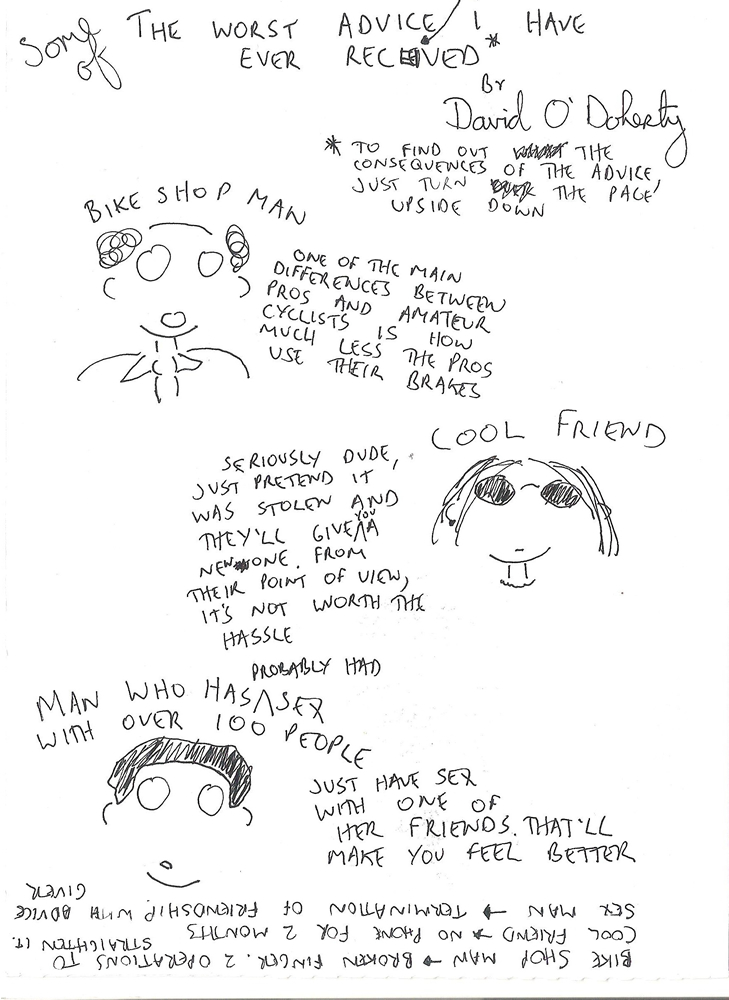 Some of THE WORST ADVICE I HAVE
EVER RECEIVED*
BY
David O'Doherty
* TO FIND OUT THE
CONSEQUENCES OF THE ADVICE,
JUST TURN THE PAGE
UPSIDE DOWN
BIKE SHOP MAN
ONE OF THE MAIN
DIFFERENCES BETWEEN
PROS AND AMATEUR
CYCLISTS IS HOW
MUCH LESS THE PROS
USE THEIR BRAKES
COOL FRIEND
SERIOUSLY DUDE,
JUST PRETEND IT
WAS STOLEN AND
THEY'LL GIVE YOU A
NEW ONE. FROM
THEIR POINT OF VIEW,
IT'S NOT WORTH THE
HASSLE
MAN WHO HAS PROBABLY HAD SEX
WITH OVER 100 PEOPLE
JUST HAVE SEX
WITH ONE OF
HER FRIENDS. THAT'LL
MAKE YOU FEEL BETTER
BIKE SHOP MAN → BROKEN FINGER. 2 OPERATIONS TO
STRAIGHTEN IT.
COOL FRIEND → NO PHONE FOR 2 MONTHS
SEX MAN → TERMINATION OF FRIENDSHIP WITH ADVICE
GIVER